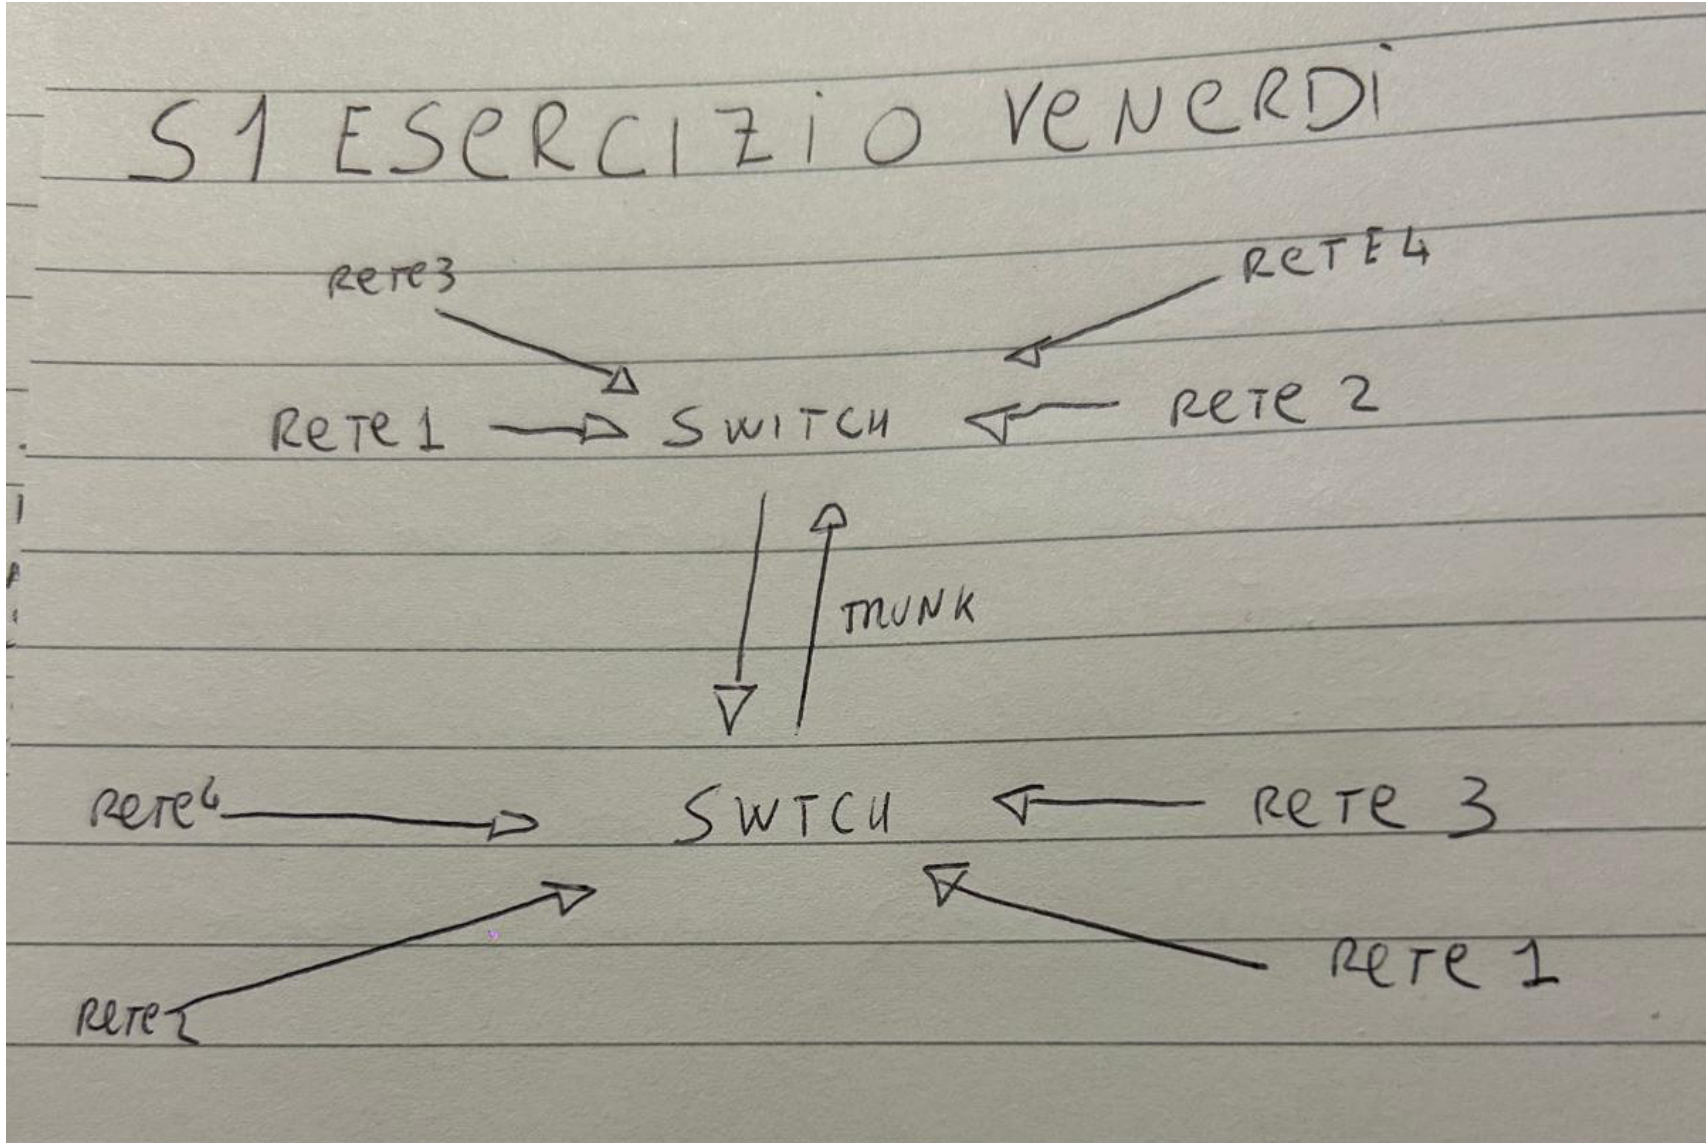 S1 ESERCIZIO VENERDÌ
RETE3 RETE4
RETE 1 SWITCH RETE 2
TRUNK
RETE4 SWTCH RETE 3
RETE 1
RETE2